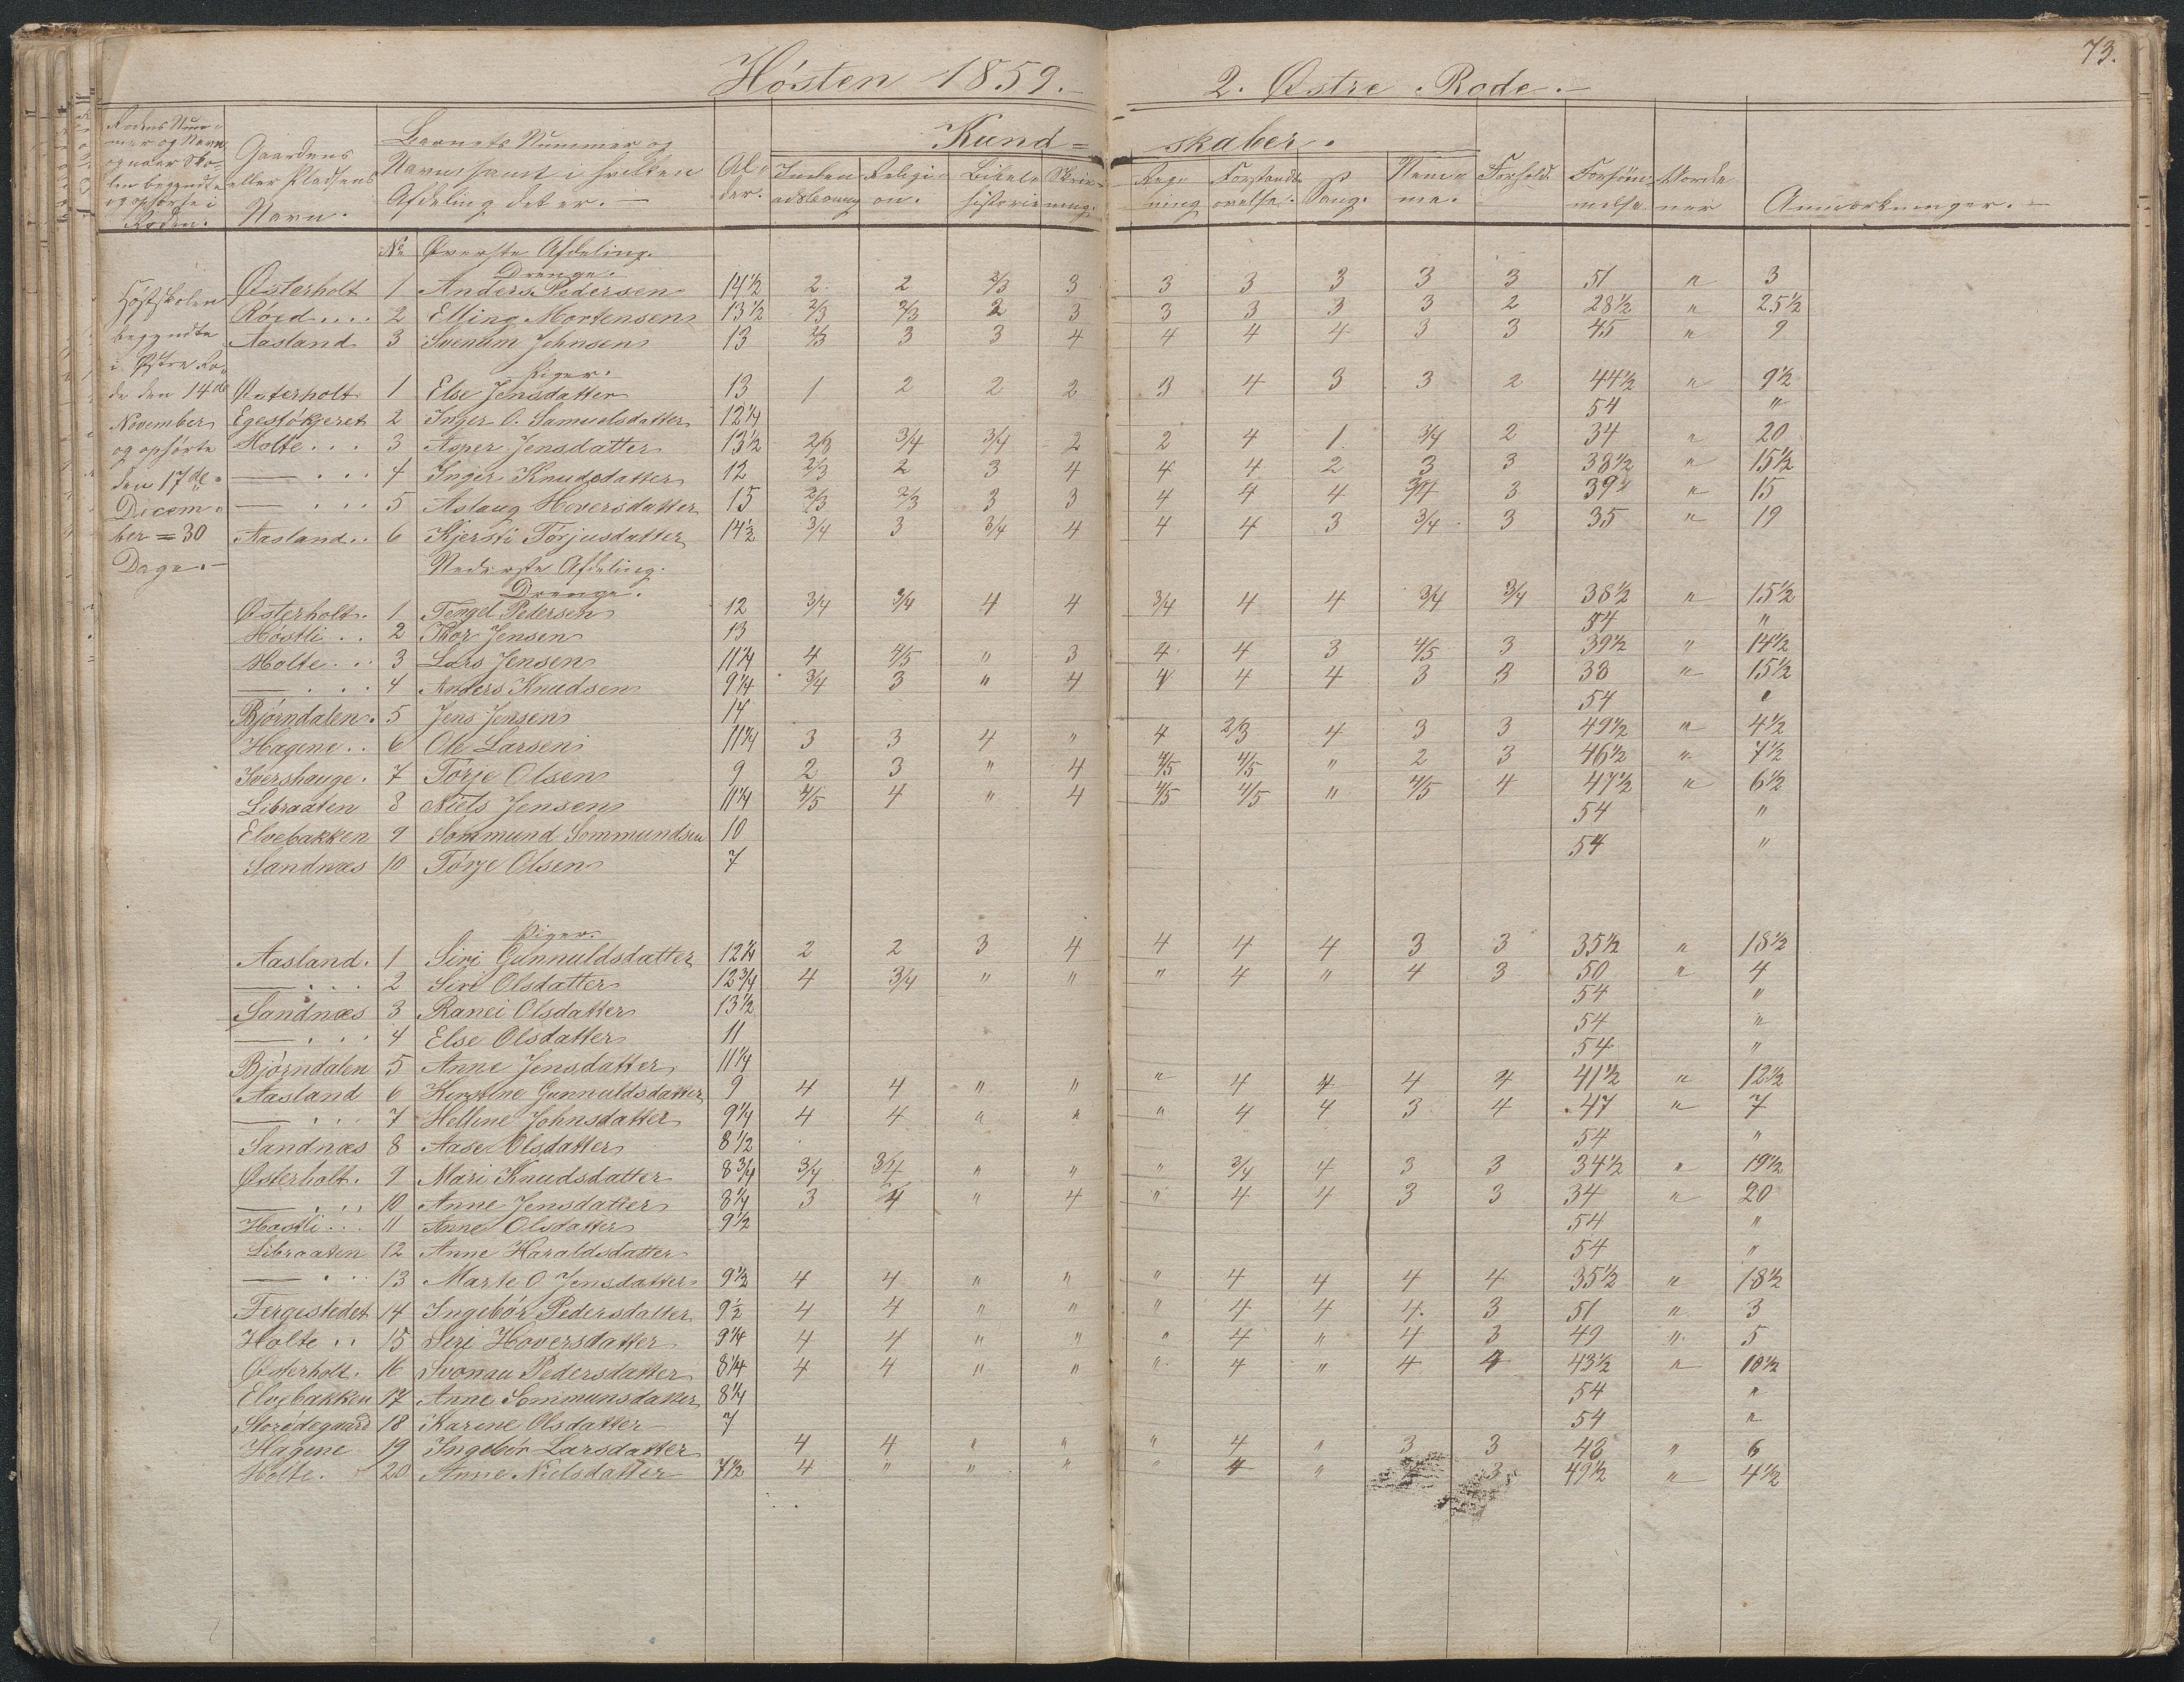 73.
Høsten 1859.- 2. Østre Rode.-
Rodens Num-
mer og Navn
og naar Sko-
len begyndte
og ophørte i
Roden.
Gaardens
eller Pladsens
Navn.
Barnets Nummer og
Navn samt i hvilken
Afdeling det er.-
Al-
der.
Kund= skaber.
Inden-
adslæsning
Religi-
on.
Bibels-
historie
Skriv-
ning.
Reg-
ning
Forstands-
øvelse.
Sang.
Nem-
me.
Forhold.
Forsøm-
melse
Anmærkninger.-
Høstskolen
begyndte
i Østre Ro-
de den 14de
November
og ophørte
den 17de
Decem-
ber = 30
Dage.-
No Øverste Afdeling.
Drenge.
Østerholt 1 Anders Pedersen 14½ 2 2 2/3 3 3 3 3 3 3 51 " 3
Røed.... 2 Elling Mortensen 13½ 2/3 2/3 2 3 3 3 3 3 2 28½ " 25½
Aasland 3 Svenum Johnsen 13 2/3 3 3 4 4 4 4 3 3 45 " 9
Piger.
Østerholt 1 Else Jensdatter 13 1 2 2 2 3 4 3 3 2 44½ " 9½
Egestøkjeret 2 Inger O. Samuelsdatter 12¼ 54 "
Holte... 3 Asper Jensdatter 13½ 2/3 3/4 3/4 2 2 4 1 3/4 2 34 " 20
— ... 4 Inger Knudsdatter 12 2/3 2 3 4 4 4 2 3 3 38½ " 15½
— ... 5 Aslaug Hoversdatter 15 2/3 2/3 3 3 4 4 4 3/4 3 39 " 15
Aasland.. 6 Kjersti Torjusdatter 14½ 3/4 3 3/4 4 4 4 3 3/4 3 35 " 19
Nederste Afdeling.
Drenge.
Østerholt. 1 Tengel Pedersen 12 3/4 3/4 4 4 3/4 4 4 3/4 3/4 38½ " 15½
Høstli.. 2 Thor Jensen 13 54 "
Holte... 3 Lars Jensen 11¼ 4 4/5 " 3 4 4 3 4/5 3 39½ " 14½
— ... 4 Anders Knudsen 9¼ 3/4 3 " 4 4 4 4 3 3 38 " 15½
Bjørndalen. 5 Jens Jensen 14 54 "
Hagene.. 6 Ole Larsen 11¼ 3 3 4 " 4 2/3 4 3 3 49½ " 4½
Ivershauge. 7 Torje Olsen 9 2 3 " 4 4/5 4/5 " 2 3 46½ " 7½
Libraaten 8 Niels Jensen 11¼ 4/5 4 " 4 4/5 4/5 " 4/5 4 47½ " 6½
Elvebakken 9 Sommund Sommundsen 10 54 "
Sandnæs 10 Torje Olsen 7 54 "
Piger.
Aasland. 1 Siri Gunnuldsdatter 12¼ 2 2 3 4 4 4 4 3 3 35½ " 18½
— ... 2 Siri Olsdatter 12¾ 4 3/4 " " " 4 " 4 3 50 " 4
Sandnæs 3 Ranei Olsdatter 13½ 54 "
— ... 4 Else Olsdatter 11 54 "
Bjørndalen 5 Anne Jensdatter 11¼ 54 "
Aasland 6 Kirstine Gunnuldsdatter 9 4 4 " " " 4 4 4 4 41½ " 12½
— ... 7 Helline Johnsdatter 9¼ 4 4 " " " 4 4 3 4 47 " 7
Sandnæs 8 Aase Olsdatter 8½ 54 "
Østerholt. 9 Mari Knudsdatter 8¾ 3/4 3/4 " " " 3/4 4 3 3 34½ " 19½
— ... 10 Anne Jensdatter 8¼ 3 4 " 4 " 4 4 3 3 34 " 20
Høstli... 11 Anne Olsdatter 9½ 54 "
Libraaten 12 Anne Haraldsdatter 54 "
— ... 13 Marte O. Jensdatter 9½ 4 4 " " " 4 4 4 4 35½ " 18½
Fergestedet 14 Ingebor Pedersdatter 9½ 4 4 " " " 4 4 4 3 51 " 3
Holte.. 15 Siri Hoversdatter 9¼ 4 4 " " " 4 " 4 3 49 " 5
Østerholt. 16 Svonau Pedersdatter 8¼ 4 4 " " " 4 " 4 4 43½ " 10½
Elvebakken 17 Anne Sommunsdatter 8¼ 54 "
Storødegaard 18 Karine Olsdatter 7 54 "
Hagene 19 Ingebor Larsdatter 4 4 " " " 4 " 3 3 48 " 6
Holte. 20 Anne Nielsdatter 7½ 4 " " " " 4 " 3 49½ " 4½